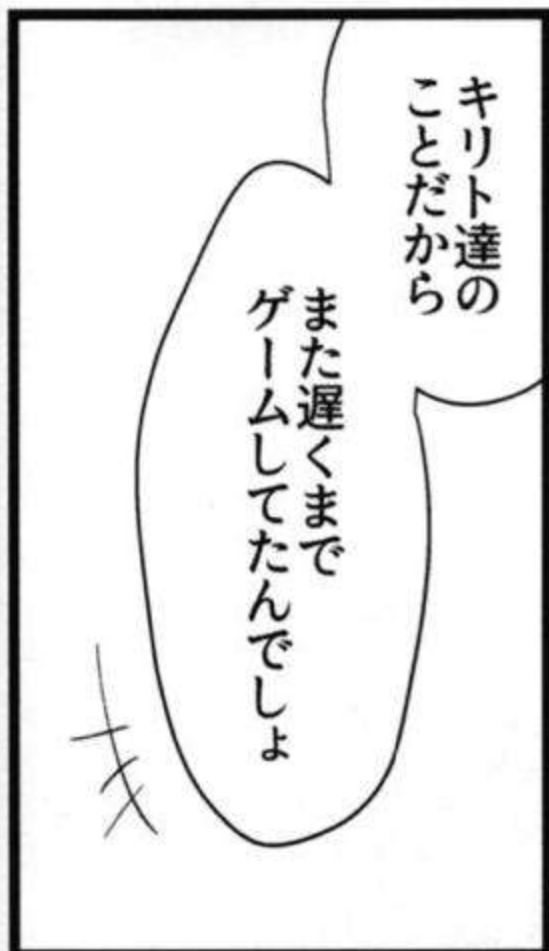 キリト達の
ことだから
また遅くまで
ゲームしてたんでしょ